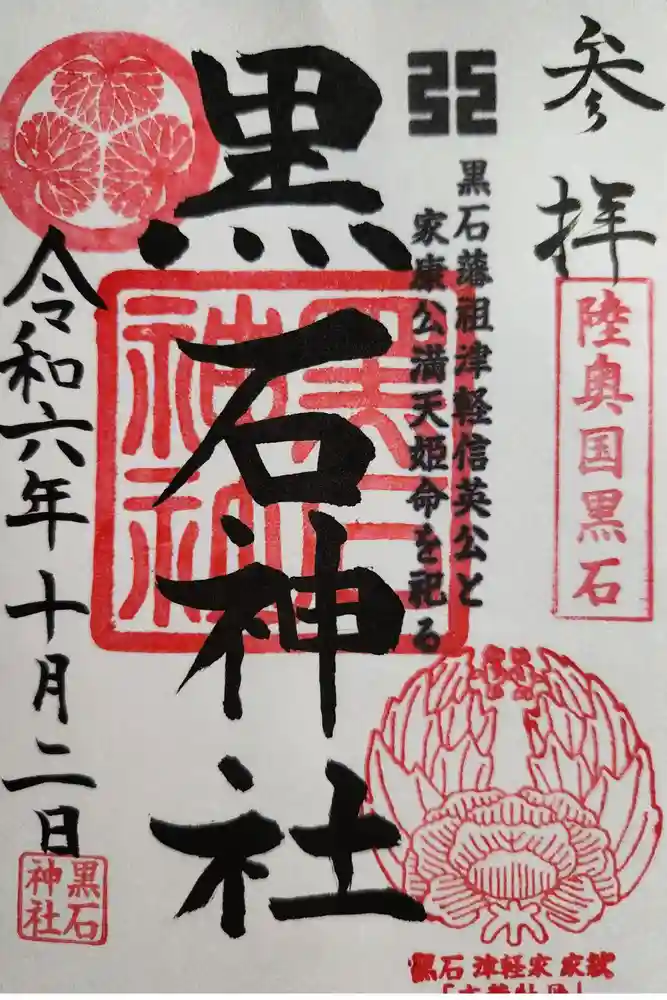 参拝
陸奥国黒石
黒石藩祖津軽信英公と
家康公満天姫命を祀る
黒石神社
黒石神社
令和六年十月二日
黒石
神社
黒石 津軽家 家紋